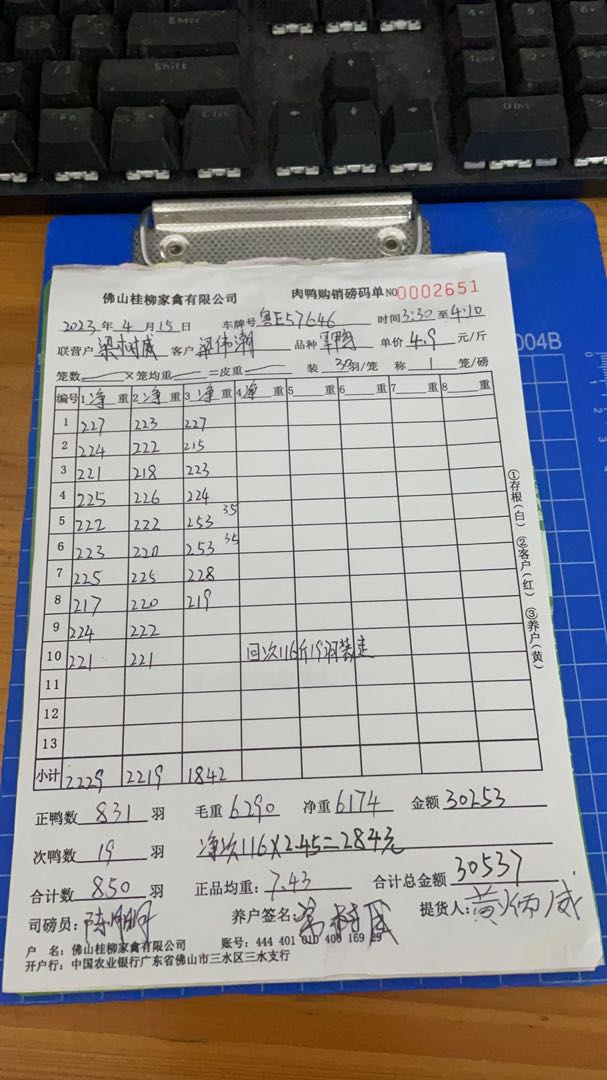 佛山桂柳家禽有限公司 肉鸭购销磅码单 NO 0002651
2023 年 4 月 15 日 车牌号 粤E57646 时间 3:30 至 4:10
联营户 梁树威 客户 梁伟潮 品种 单价 4.9 元/斤
笼数 ×笼均重 =皮重 装 30 羽/笼 称 1 笼/磅
编号 1 净 重 2 净 重 3 净 重 4 净 重 5 重 6 重 7 重 8 重
1 227 223 227
2 224 222 215
3 221 218 223
4 225 226 224
5 222 222 253 35
6 223 220 253 35
7 225 225 228
8 217 220 219
9 224 222
10 221 221 回次116斤19羽装走
11
12
13
小计 2229 2219 1842
正鸭数 831 羽 毛重 6290 净重 6174 金额 30253
次鸭数 19 羽 净次116×2.45=284元
合计数 850 羽 正品均重: 7.43 合计总金额 30537
司磅员: 养户签名: 提货人: 黄炳威
户 名: 佛山桂柳家禽有限公司 账号: 444 401 010 400 169 29
开户行: 中国农业银行广东省佛山市三水区三水支行
①存根(白) ②客户(红) ③养户(黄)
004B
Shift
Enter
Ctrl
Fn